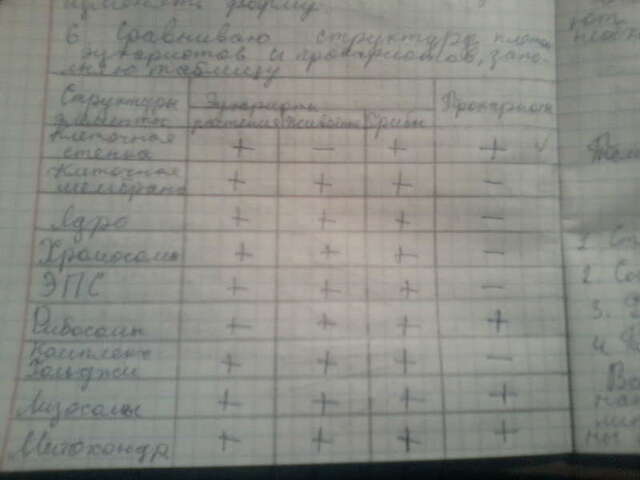 изменяет форму.
6 Сравниваю структуру клеток
эукариотов и прокариотов, запо-
лняю таблицу
Структуры Эукариоты Прокариоты
элементы растения Животн Грибы
Клеточная
стенка + – + + v
Клеточная
мембрана + + + –
Ядро + + + –
Хромосомы + + + –
ЭПС + + + –
Рибосомы + + + +
Комплекс
Гольджи + + + –
Лизосомы + + + +
Митохондр + + + +
1.
2. Со
3.
4.